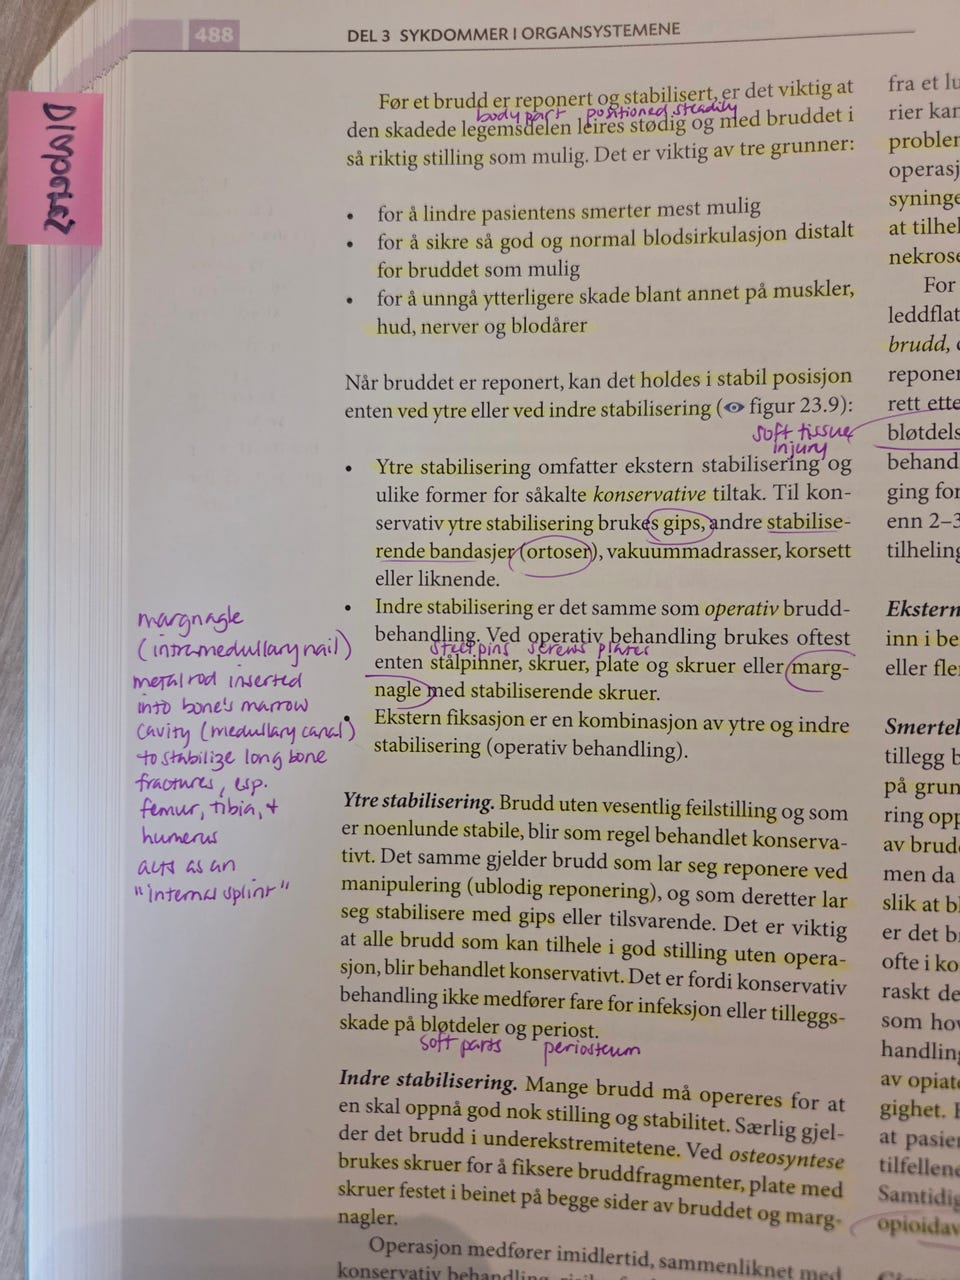 488
DEL 3 SYKDOMMER I ORGANSYSTEMENE
Før et brudd er reponert og stabilisert, er det viktig at
body part positioned steadily
den skadede legemsdelen leires stødig og med bruddet i
så riktig stilling som mulig. Det er viktig av tre grunner:
• for å lindre pasientens smerter mest mulig
• for å sikre så god og normal blodsirkulasjon distalt
for bruddet som mulig
• for å unngå ytterligere skade blant annet på muskler,
hud, nerver og blodårer
Når bruddet er reponert, kan det holdes i stabil posisjon
enten ved ytre eller ved indre stabilisering (figur 23.9):
soft tissue
injury
• Ytre stabilisering omfatter ekstern stabilisering og
ulike former for såkalte konservative tiltak. Til kon-
servativ ytre stabilisering brukes gips, andre stabilise-
rende bandasjer (ortoser), vakuummadrasser, korsett
eller liknende.
• Indre stabilisering er det samme som operativ brudd-
behandling. Ved operativ behandling brukes oftest
steel pins screws plates
enten stålpinner, skruer, plate og skruer eller marg-
nagle med stabiliserende skruer.
• Ekstern fiksasjon er en kombinasjon av ytre og indre
stabilisering (operativ behandling).
margnagle
(intramedullary nail)
metal rod inserted
into bone's marrow
cavity (medullary canal)
to stabilize long bone
fractures, esp.
femur, tibia, +
humerus
acts as an
"internal splint"
Ytre stabilisering. Brudd uten vesentlig feilstilling og som
er noenlunde stabile, blir som regel behandlet konserva-
tivt. Det samme gjelder brudd som lar seg reponere ved
manipulering (ublodig reponering), og som deretter lar
seg stabilisere med gips eller tilsvarende. Det er viktig
at alle brudd som kan tilhele i god stilling uten opera-
sjon, blir behandlet konservativt. Det er fordi konservativ
behandling ikke medfører fare for infeksjon eller tilleggs-
skade på bløtdeler og periost.
soft parts periosteum
Indre stabilisering. Mange brudd må opereres for at
en skal oppnå god nok stilling og stabilitet. Særlig gjel-
der det brudd i underekstremitetene. Ved osteosyntese
brukes skruer for å fiksere bruddfragmenter, plate med
skruer festet i beinet på begge sider av bruddet og marg-
nagler.
Operasjon medfører imidlertid, sammenliknet med
konservativ behandling,
fra et
rier
nekrose
For
brudd,
rett ette
bløtdels
behand
ging for
enn 2–3
tilheling
Ekstern
inn i be
eller fle
Smerte
tillegg
på grun
ring opp
av brud
men da
slik at
er det
ofte i
raskt de
som
handling
av opiat
gighet.
at pasie
tilfellene
Samtidig
opioidav